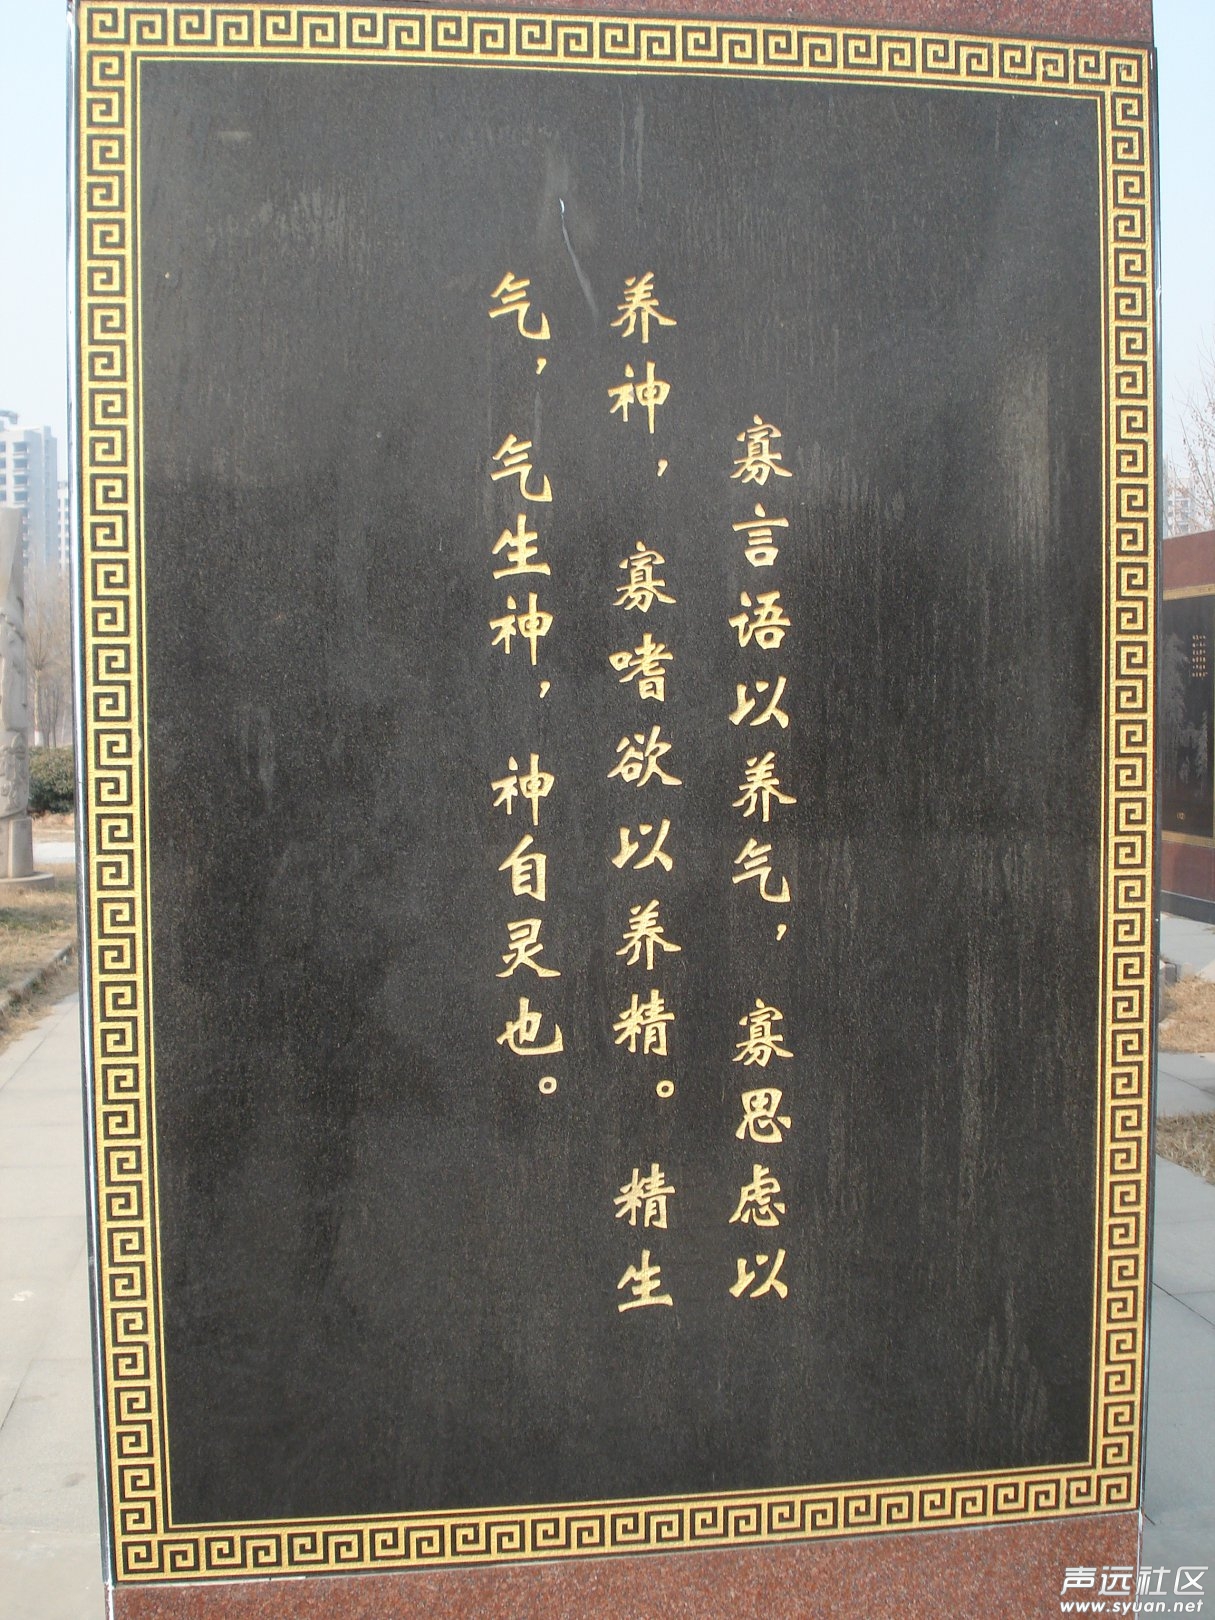 寡言语以养气，寡思虑以
养神，寡嗜欲以养精。精生
气，气生神，神自灵也。
声远社区
www.syuan.net